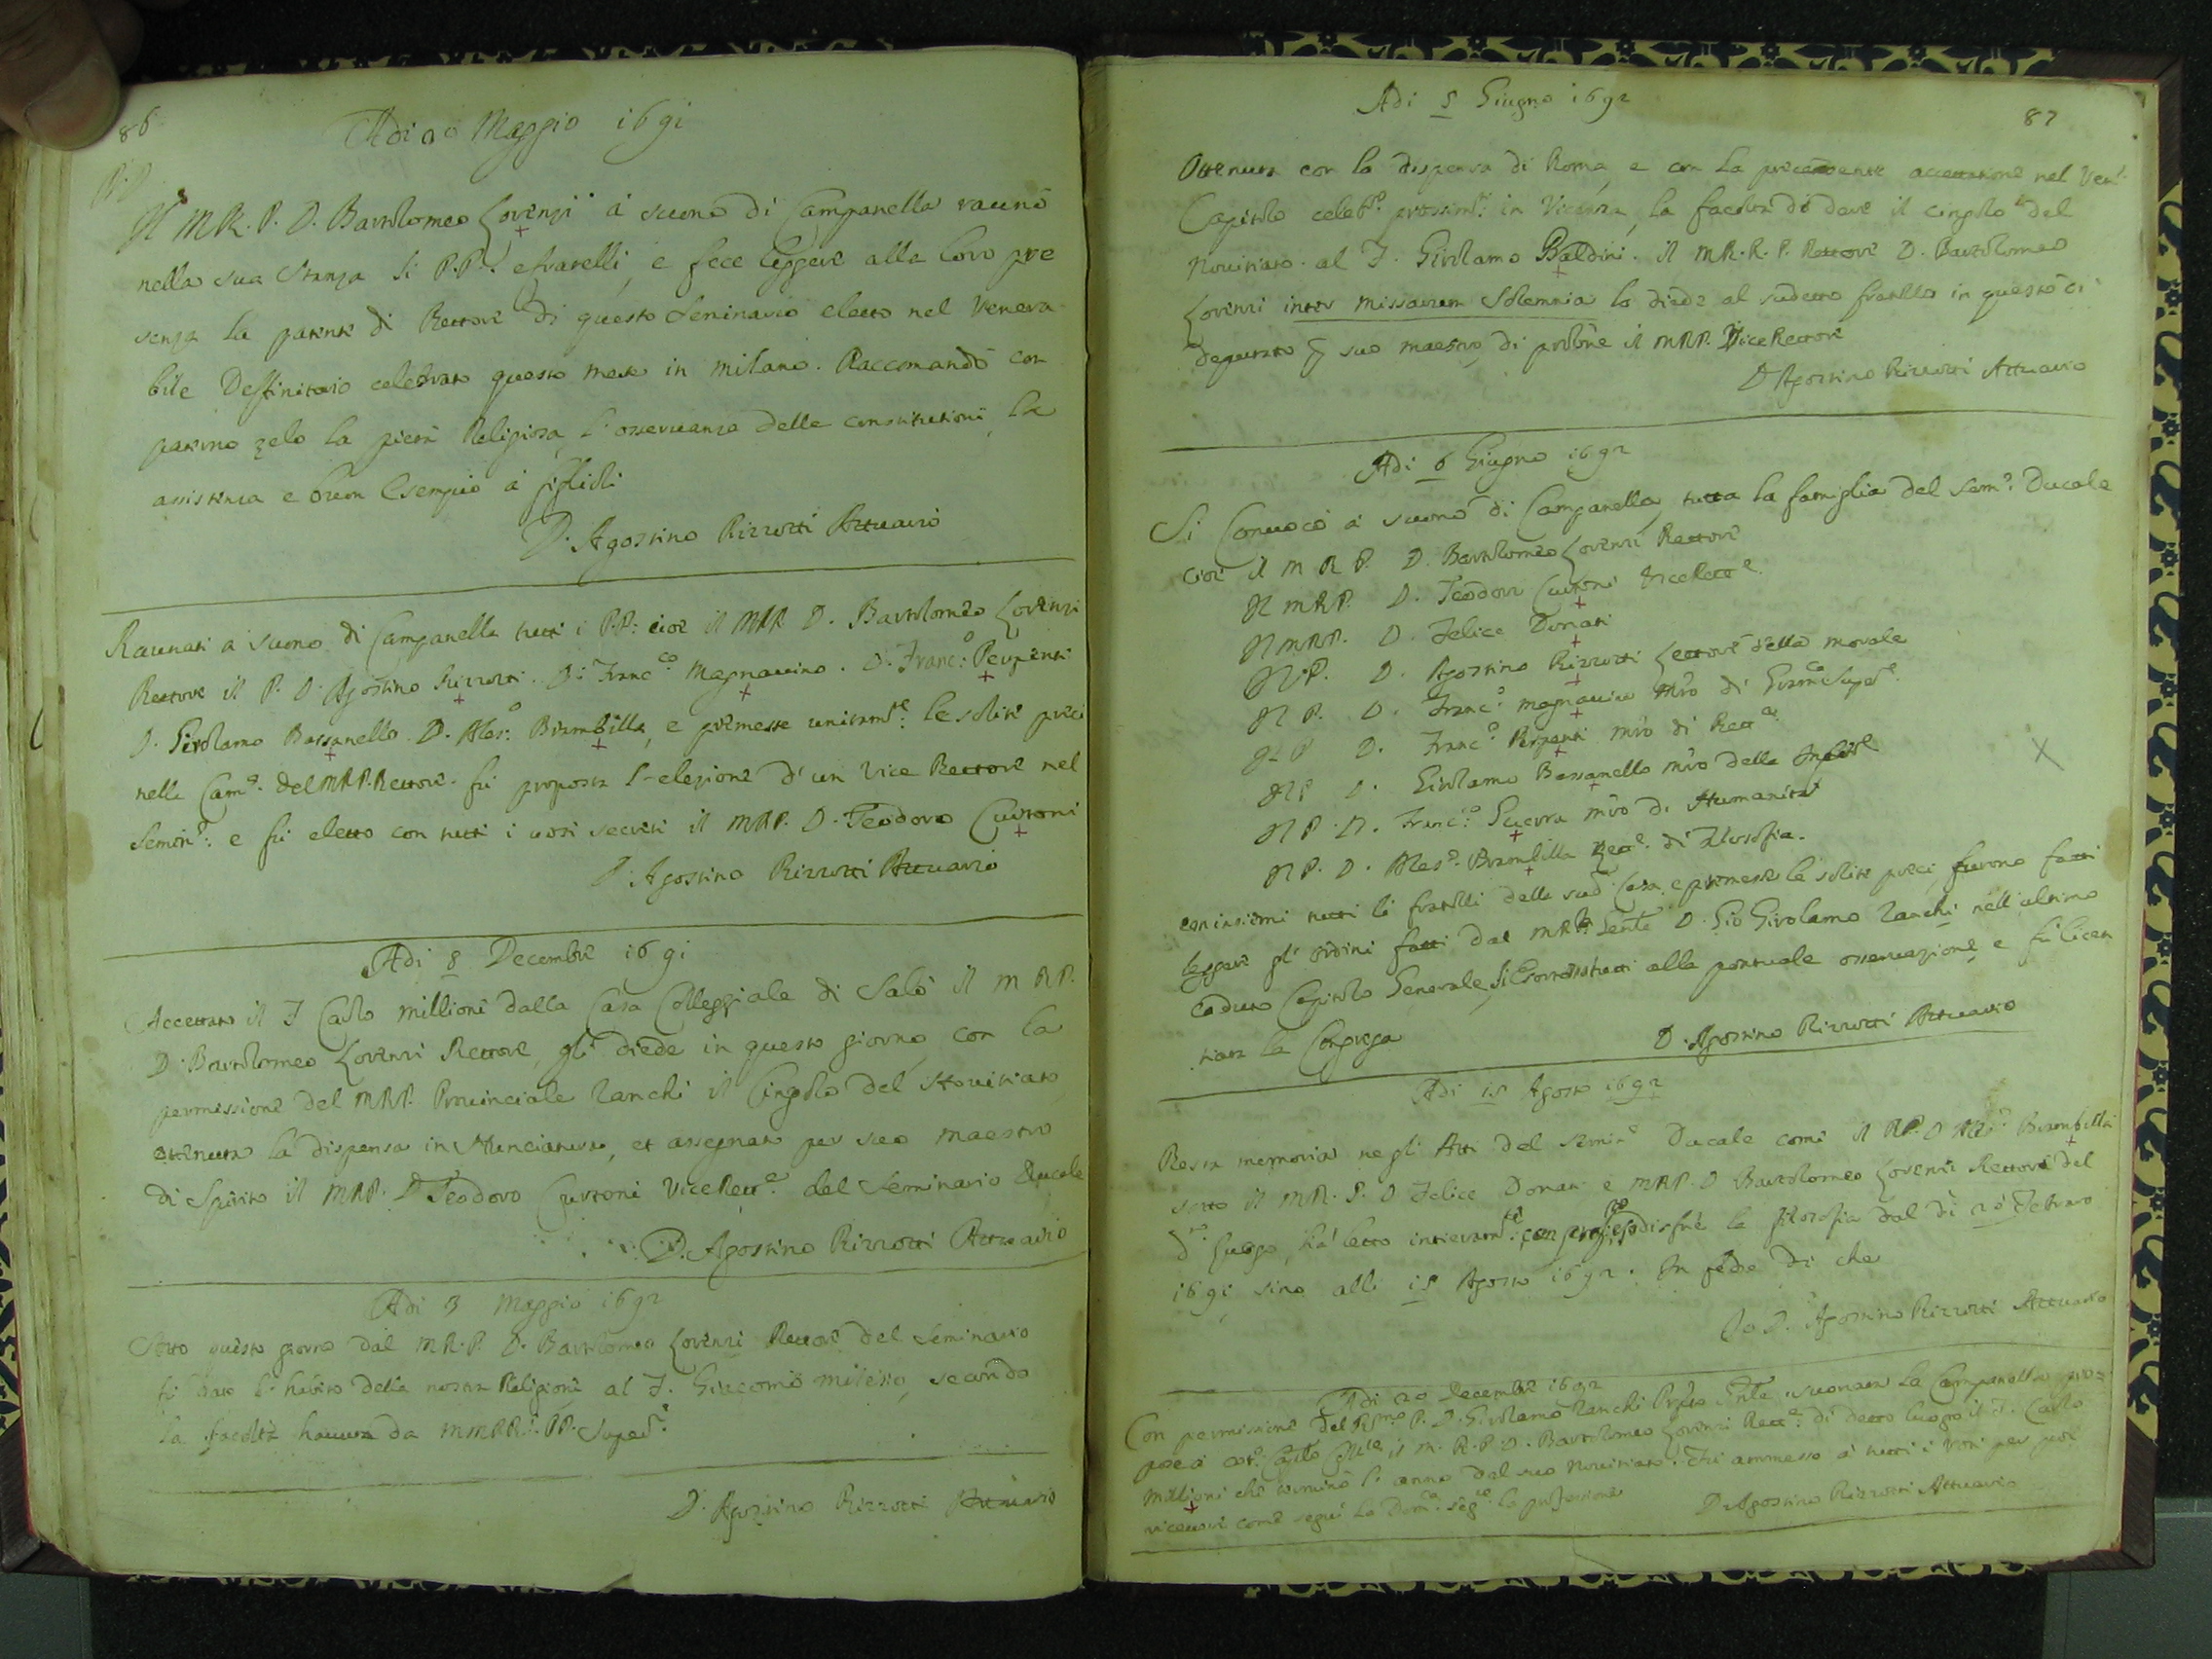 86
Adi 20 Maggio 1691
Il M.R.P. D. Bartolomeo Lorenzi à suono di Campanella raunò
nella sua stanza li P.P. e fratelli, e fece leggere alla loro pre
senza la patente di Rettore di questo Seminario eletto nel Venera
bile Deffinitorio celebrato questo mese in Milano. Raccomandò con
paterno zelo la pietà Religiosa, l'osservanza delle constitutioni, la
assistenza e buon Esempio à figlioli
D. Agostino Rizzotti Attuario
Raunati a suono di Campanella tutti i P.P: cioè il M.R.P. D. Bartolomeo Lorenzi
Rettore il P. D. Agostino Rizzotti. D. Franc.co Magnavino. D. Franc:o Perpenti
D. Girolamo Bassanello. D. Ales:o Brambilla, e premesse unitam.te le solite preci
nella Cam.a del M.R.P. Rettore. fù proposta l'elezione d'un Vice Rettore nel
Semin.o: e fù eletto con tutti i voti secreti il M.R.P. D. Teodoro Curtoni
D. Agostino Rizzotti Attuario
Adi 8 Decembre 1691
Accettato il F. Carlo Millioni dalla Casa Colleggiale di Salò il M.R.P.
D. Bartolomeo Lorenzi Rettore, gli diede in questo giorno, con la
permissione del M.R.P. Provinciale Zanchi il Cingolo del Novitiato
ottenuta la dispensa in Nunciatura, et assegnato per suo maestro
di Spirito il M.R.P. D. Teodoro Curtoni ViceRett.e del Seminario Ducale
D. Agostino Rizzotti Attuario
Adi 3 Maggio 1692
Sotto questo giorno dal M.R.P. D. Bartolomeo Lorenzi Rettore del Seminario
fù dato l'habito della nostra Religione al F. Giacomo Milesio, secondo
la facoltà havuta da M.M.R.R. P.P. Super.i
D. Agostino Rizzotti Attuario
87
Adi 5 Giugno 1692
Ottenuta con la dispensa di Roma, e con la precedente accettatione nel Ven.
Capitolo celeb.o prossim.e in Vicenza, la facoltà di dare il cingolo del
Novitiato al F. Girolamo Baldini. il M.R.P. Rettore D. Bartolomeo
Lorenzi inter missarum Solemnia lo diede al sudetto fratello in questo dì
deputato p suo maestro di prob.ne il M.R.P. ViceRettore
D Agostino Rizzotti Attuario
Adi 6 Giugno 1692
Si Convocò à suono di Campanella tutta la famiglia del Sem.o Ducale
cioè il M R P. D. Bartolomeo Lorenzi Rettore
Il M.R.P. D. Teodoro Curtoni ViceRett.e
Il M.R.P. D. Felice Donati
Il P. D. Agostino Rizzotti Lettore della morale
Il P. D. Franc.o Magnavino Mro di Gram.ca Super.e
Il P D. Franc.o Perpenti mro di Rett.ca
Il P D. Girolamo Bassanello mro della Infer.e
Il P. D. Franc.o Guerra mro di Humanità
Il P. D. Ales.o Brambilla Lett.e di Filosofia.
con insiemi tutti li fratelli della sud.a Casa, e premesse le solite preci, furono fatti
leggere gl'ordini fatti dal M.R.P. D. Gio Girolamo Zanchi nell'ultimo
caduto Capitolo Generale, si Esortò tutti alla pontuale osservazione, e fù licen
tiata la Congrega
D. Agostino Rizzotti Attuario
Adi 15 Agosto 1692
Resta memoria negli Atti del Semin.o Ducale come il P. D. Ales.o Brambilla
sotto il M.R.P. D. Felice Donati e M.R.P. D Bartolomeo Lorenzi Rettore del
d.o luogo, hà letto intieram.te la filosofia dal dì 20 Febraro
1691 sino alli 15 Agosto 1692. In fede di che
Io D. Agostino Rizzotti Attuario
Adi 20 Decembre 1692
Con permissione del R.mo P. D. Girolamo Zanchi suonata la Campanella pro=
pose à il M.R.P. D. Bartolomeo Lorenzi Rett.e di detto luogo il F. Carlo
Millioni che terminò l'anno del suo Novitiato. Fù ammesso à tutti i voti per poi
ricevere come seguì la Dom.ca seg.te la professione
D. Agostino Rizzotti Attuario